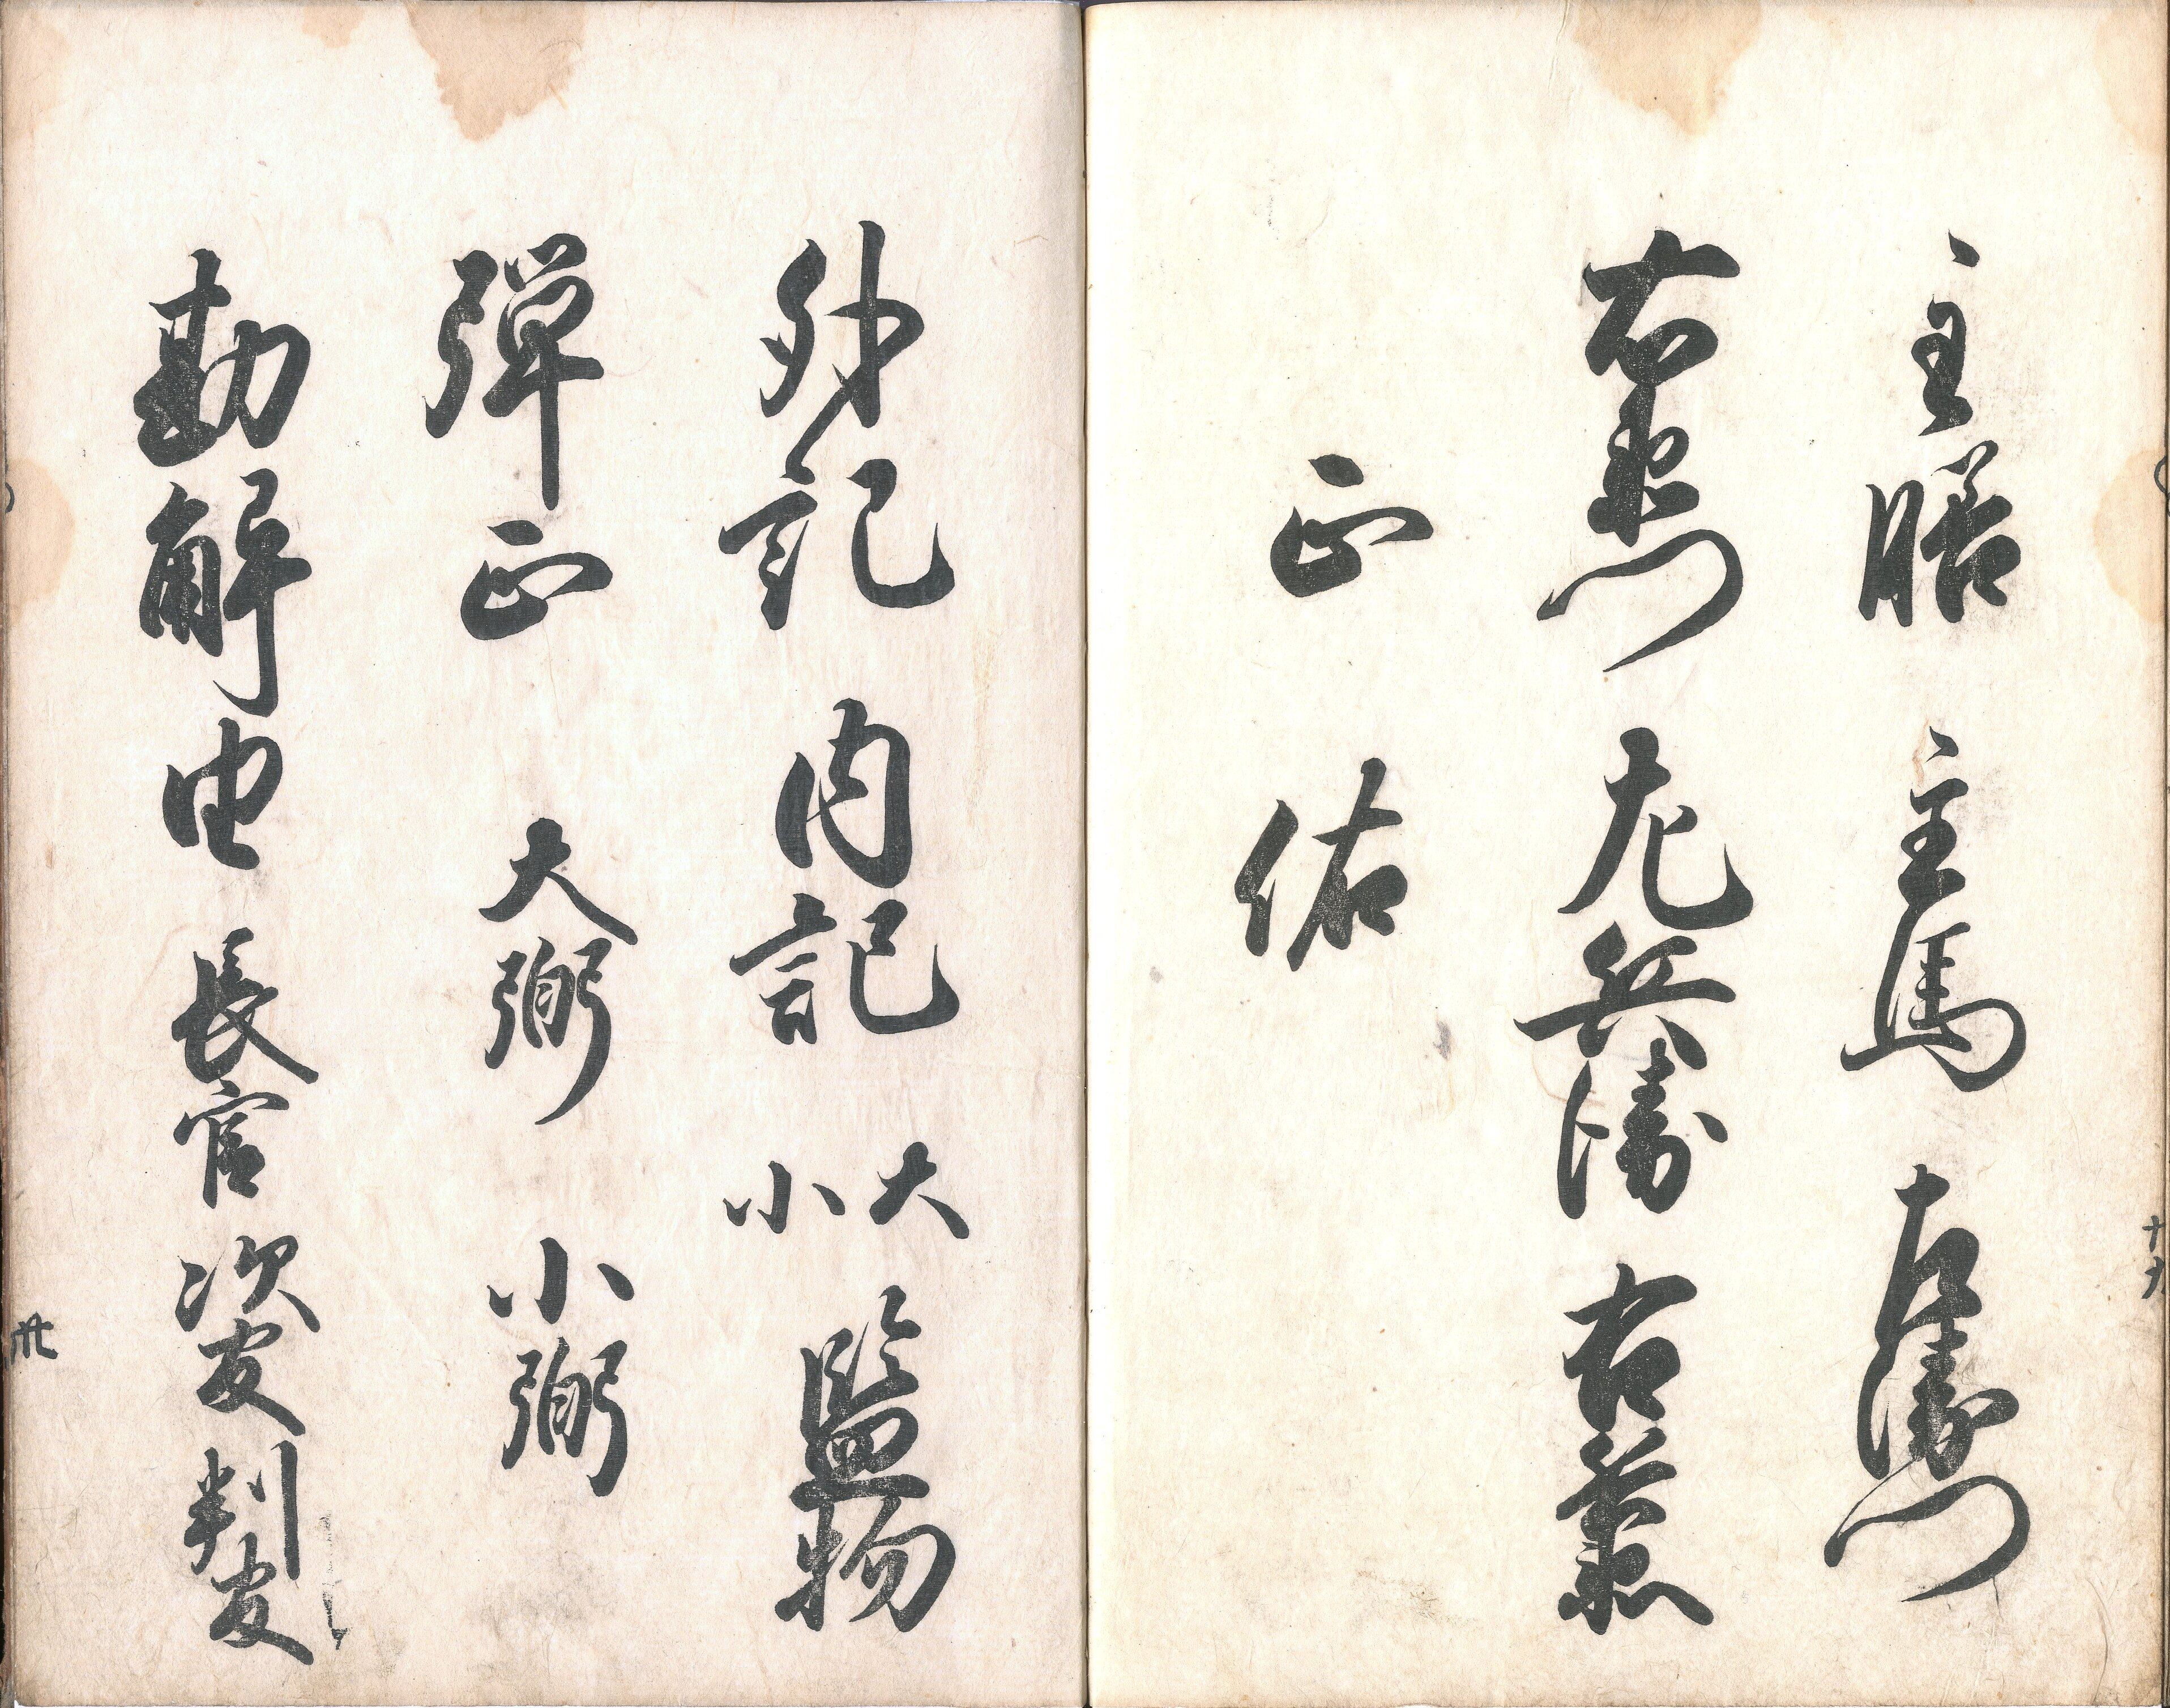 主膳 主馬 左衛門
右衛門 左兵衛 右兵衛
正 佑
外記 内記 大小 監物
弾正 大弼 小弼
勘解由 長官 次官 判官